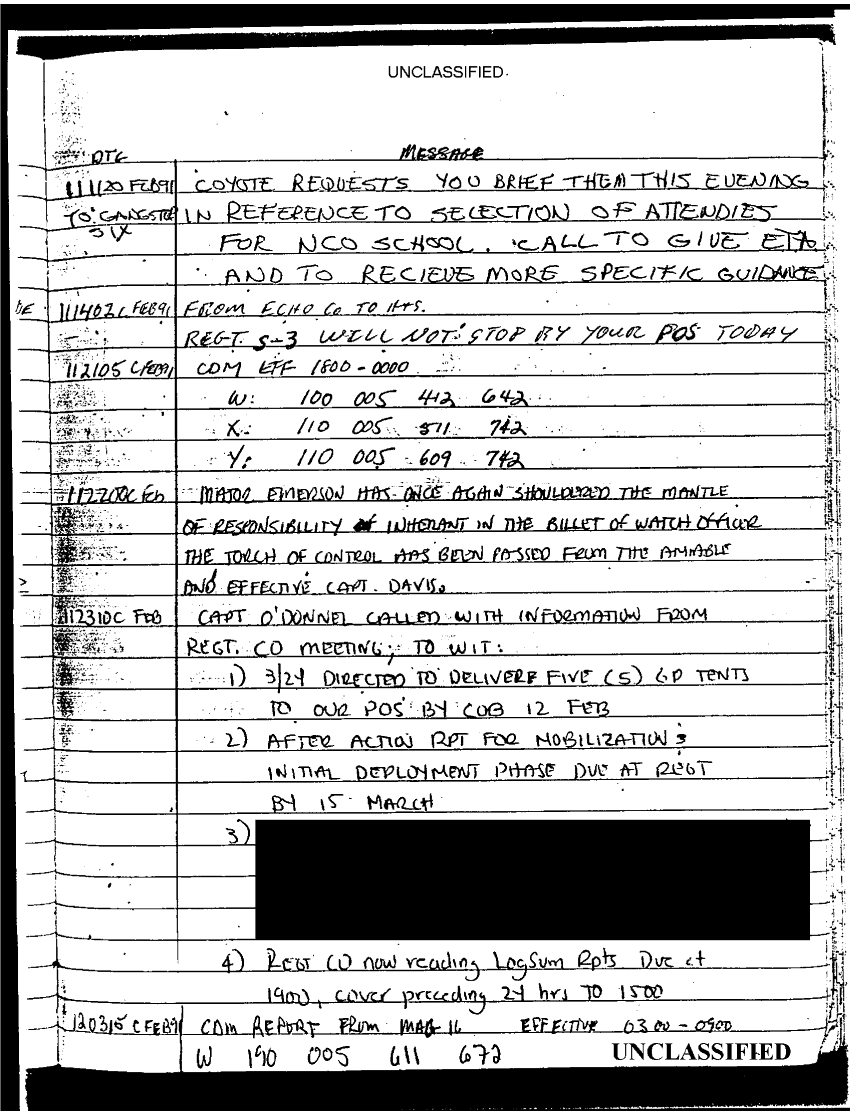 UNCLASSIFIED
DTG MESSAGE
111120 FEB91 COYOTE REQUESTS YOU BRIEF THEM THIS EVENING
TO: GANGSTER SIX IN REFERENCE TO SELECTION OF ATTENDIES
FOR NCO SCHOOL. CALL TO GIVE ETA
AND TO RECIEVE MORE SPECIFIC GUIDANCE
111402C FEB91 FROM ECHO Co TO H+S.
REGT. S-3 WILL NOT STOP BY YOUR POS TODAY
112105 CFEB91 CDM EFF 1800-0000
W: 100 005 412 642
X: 110 005 511 742
Y: 110 005 609 742
112200C Feb MAJOR EMERSON HAS ONCE AGAIN SHOULDERED THE MANTLE
OF RESPONSIBILITY INHERANT IN THE BILLET OF WATCH OFFICER
THE TORCH OF CONTROL HAS BEEN PASSED FROM THE AMIABLE
AND EFFECTIVE CAPT. DAVIS.
112310C FEB CAPT O'DONNEL CALLED WITH INFORMATION FROM
REGT. CO MEETING; TO WIT:
1) 3/24 DIRECTED TO DELIVERE FIVE (5) GP TENTS
TO OUR POS BY COB 12 FEB
2) AFTER ACTION RPT FOR MOBILIZATION &
INITIAL DEPLOYMENT PHASE DUE AT REGT
BY 15 MARCH
3)
4) REGT CO now reading LogSum Rpts Due at
1900, cover preceding 24 hrs TO 1500
120315 CFEB91 CDM REPORT FROM MAG 16 EFFECTIVE 0300-0900
W 190 005 611 672
UNCLASSIFIED